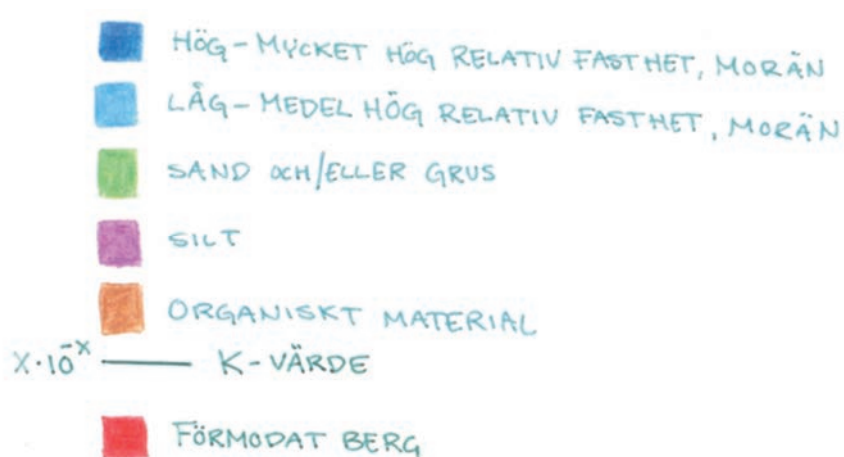 HÖG-MYCKET HÖG RELATIV FASTHET, MORÄN
LÅG-MEDEL HÖG RELATIV FASTHET, MORÄN
SAND OCH/ELLER GRUS
SILT
ORGANISKT MATERIAL
X·10⁻ˣ —— K-VÄRDE
FÖRMODAT BERG